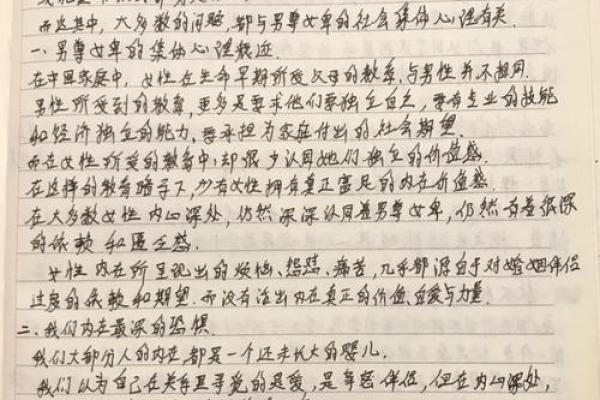 而这其中,大多数的问题,都与男尊女卑的社会集体心理有关.
一、男尊女卑的集体心理
在中国家庭中,女性在生命早期所受父母的教育,与男性并不相同.
男性所受到的教育,更多是要求他们要独立自主,要有专业的技能
和经济独立的能力,要承担为家庭付出的社会期望.
而在女性所受的教育中,却很少认同她们独立的价值感.
在这样的教育暗示下,少有女性拥有真正富足的内在价值感.
在大多数女性内心深处,仍然深深认同着男尊女卑,仍然有着很深
的依赖和匮乏感.
女性内在所呈现出的烦恼、怨怼、痛苦,几乎都源自于对婚姻伴侣
过度的依赖和期望.而没有活出内在真正的价值、自爱与力量.
二、我们内在最深的恐惧.
我们大部分人的内在,都是一个还未长大的婴儿.
我们以为自己在关系里寻觅的是爱,是亲密伴侣,但在内心深处,